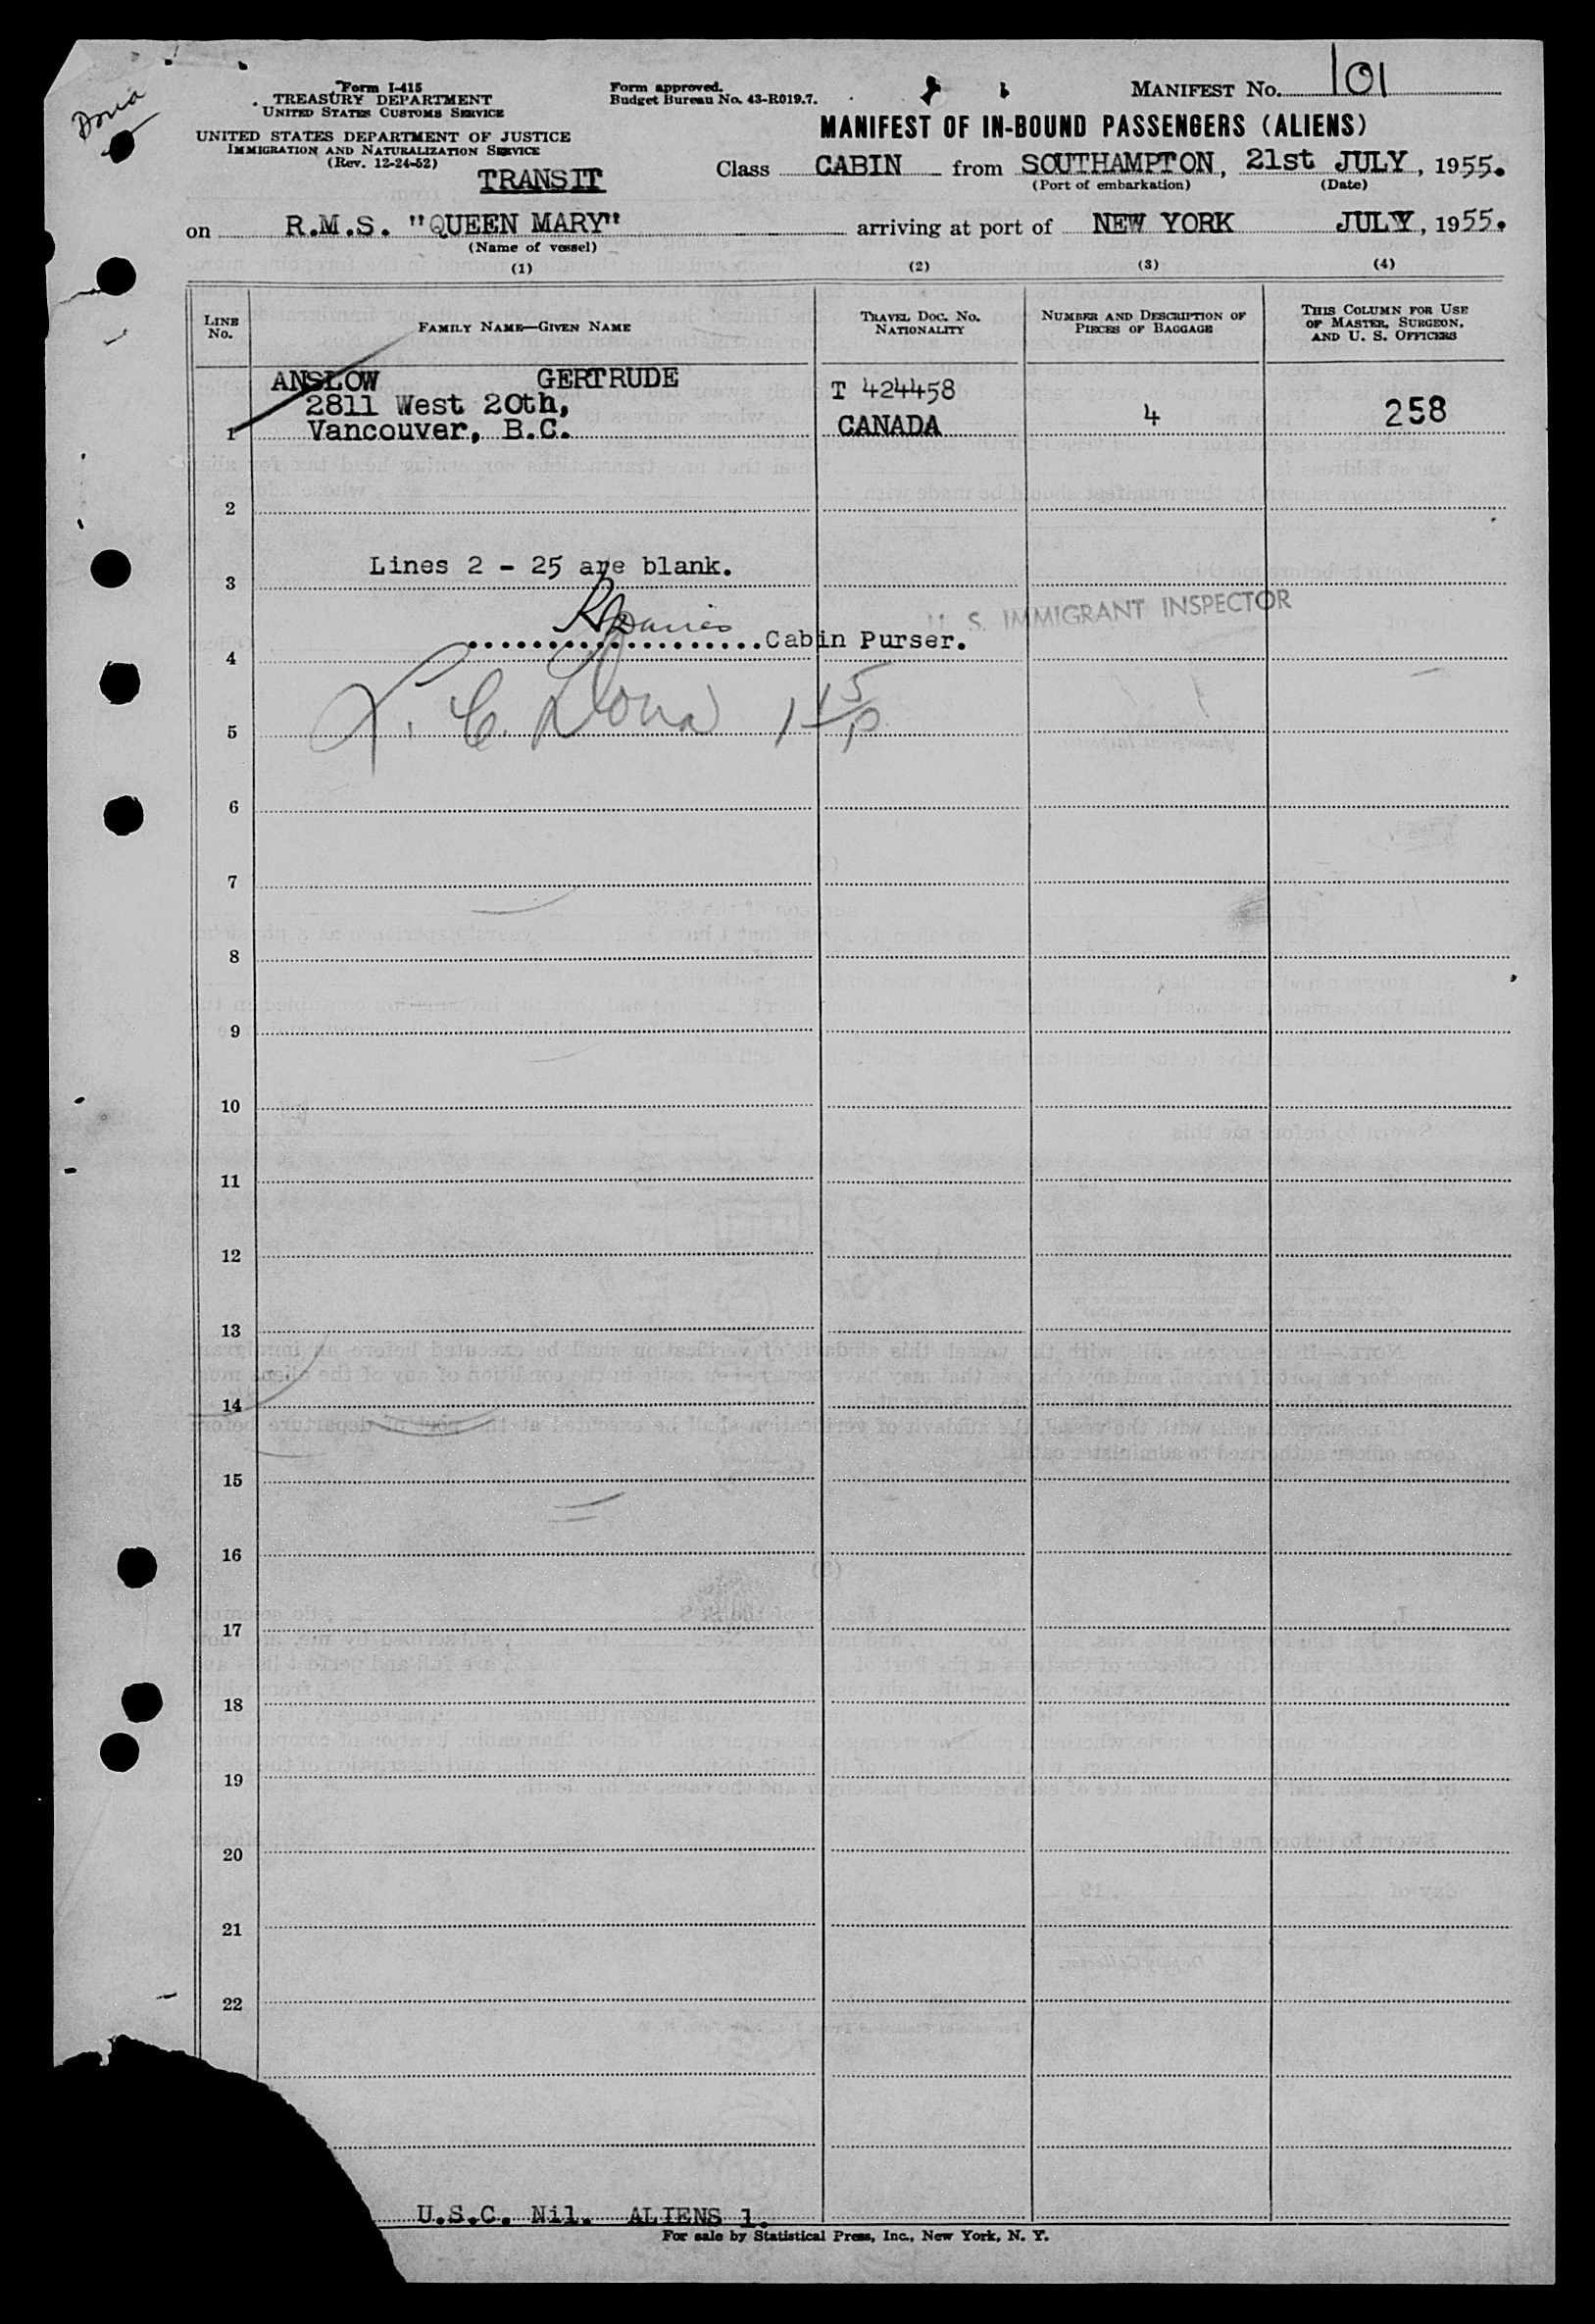 Doria
Form I-415
TREASURY DEPARTMENT
UNITED STATES CUSTOMS SERVICE
UNITED STATES DEPARTMENT OF JUSTICE
IMMIGRATION AND NATURALIZATION SERVICE
(Rev. 12-24-52)
TRANSIT
Form approved.
Budget Bureau No. 43-R019.7.
MANIFEST No. 101
MANIFEST OF IN-BOUND PASSENGERS (ALIENS)
Class CABIN from SOUTHAMPTON, 21st JULY, 1955.
(Port of embarkation) (Date)
on R.M.S. "QUEEN MARY" arriving at port of NEW YORK JULY, 1955.
(Name of vessel)
(1) (2) (3) (4)
LINE No. FAMILY NAME—GIVEN NAME TRAVEL DOC. No. NATIONALITY NUMBER AND DESCRIPTION OF PIECES OF BAGGAGE THIS COLUMN FOR USE OF MASTER, SURGEON, AND U. S. OFFICERS
ANSLOW GERTRUDE T 424458
2811 West 20th,
1 Vancouver, B.C. CANADA 4 258
2
Lines 2 - 25 are blank.
3
U. S. IMMIGRANT INSPECTOR
Davies
Cabin Purser.
4
5
6
7
8
9
10
11
12
13
14
15
16
17
18
19
20
21
22
U.S.C. Nil. ALIENS 1.
For sale by Statistical Press, Inc., New York, N. Y.